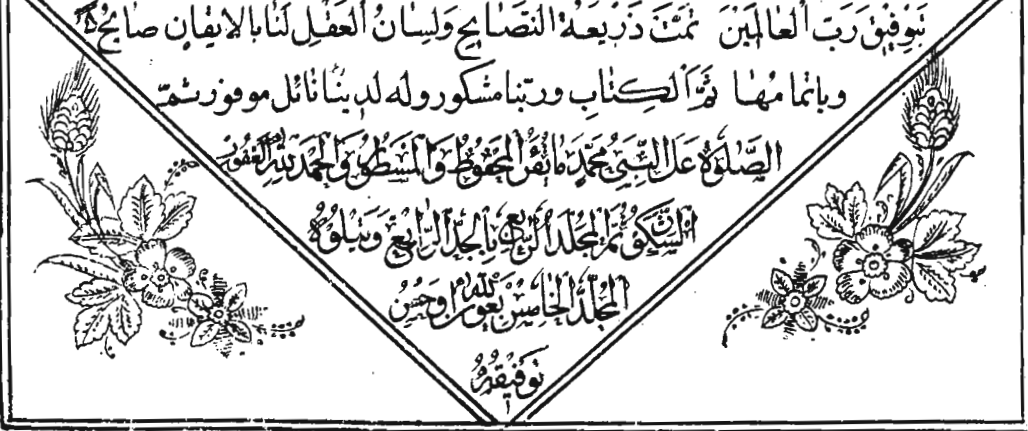 بتوفيق رب العالمين تمت ذريعة النصايح ولسان العقل لنا بالايقان صايح
وباتمامها تم الكتاب وربنا مشكور وله لدينا نائل موفور ثم
الصلوة على النبي محمد ما المحفوظ والمسطور والحمد لله الغفور
الشكور تم المجلد الرابع بالجد الرايع ويتلوه
المجلد الخامس بعون الله وحسن
توفيقه